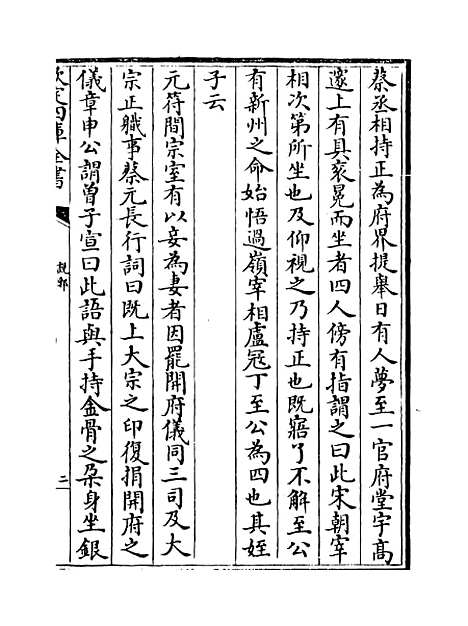 蔡丞相持正為府界提舉日有人夢至一官府堂宇高
邃上有具衮冕而坐者四人傍有指謂之曰此宋朝宰
相次第所坐也及仰視之乃持正也既寤了不解至公
有新州之命始悟過嶺宰相盧冦丁至公為四也其姪
子云
元符間宗室有以妾為妻者因罷開府儀同三司及大
宗正職事蔡元長行詞曰既上大宗之印復捐開府之
儀章申公謂曾子宣曰此語與手持金骨之朶身坐銀
欽定四庫全書
說郛
三